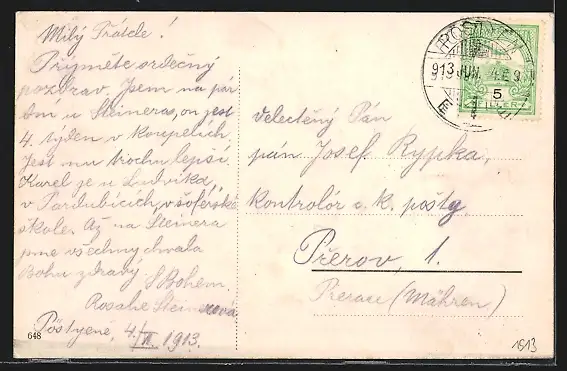 Milý Přátele!
Přijměte srdečný
pozdrav. Jsem na pár
dní u Steineras, on jest
4. týden v koupelích
Jest mu trochu lepší.
Karel je u Ludvíka,
v Pardubicích, v šoférské
škole. Až na Steinera
jsme všechny chvala
Bohu zdravý
S Bohem.
Rosalie Steinerová
Pöstyene, 4./VI. 1913.
648
velectěný Pán
pán Josef Rypka,
kontrolór c. k. pošty
Přerov, 1.
Prerau (Mähren)
913 JUN. 4. E 9
5
FILLER
1913